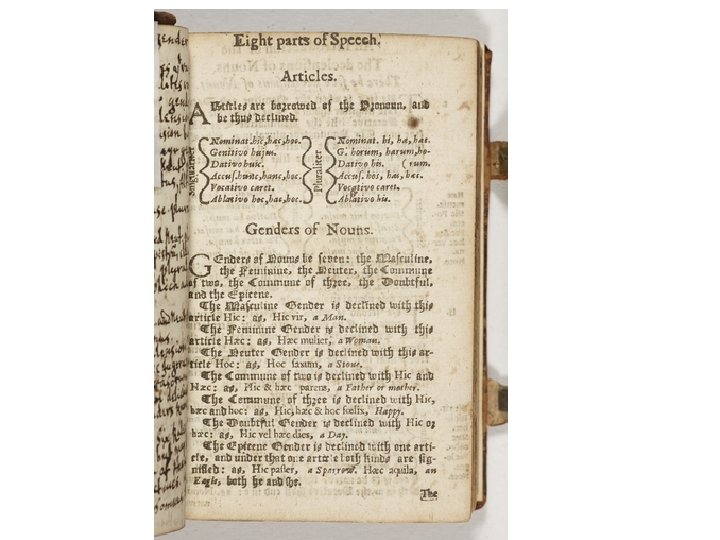 Eight parts of Speech.
Articles.
ARticles are borrowed of the Pronoun, and
be thus declined.
Singulariter
Nominat. hic, hæc, hoc.
Genitivo hujus.
Dativo huic.
Accus. hunc, hanc, hoc.
Vocativo caret.
Ablativo hoc, hac, hoc.
Pluraliter
Nominat. hi, hæ, hæc.
G. horum, harum, ho-
Dativo his. (rum.
Accus. hos, has, hæc.
Vocativo caret.
Ablativo his.
Genders of Nouns.
GEnders of Nouns be seven: the Masculine,
the Feminine, the Neuter, the Commune
of two, the Commune of three, the Doubtful,
and the Epicene.
The Masculine Gender is declined with this
article Hic: as, Hic vir, a Man.
The Feminine Gender is declined with this
article Hæc: as, Hæc mulier, a Woman.
The Neuter Gender is declined with this ar-
ticle Hoc: as, Hoc saxum, a Stone.
The Commune of two is declined with Hic and
Hæc: as, Hic & hæc parens, a Father or mother.
The Commune of three is declined with Hic,
hæc and hoc: as, Hic, hæc & hoc fœlix, Happy.
The Doubtful Gender is declined with Hic or
hæc: as, Hic vel hæc dies, a Day.
The Epicene Gender is declined with one arti-
cle, and under that one article both kinds are sig-
nified: as, Hic passer, a Sparrow. Hæc aquila, an
Eagle, both he and she.
The